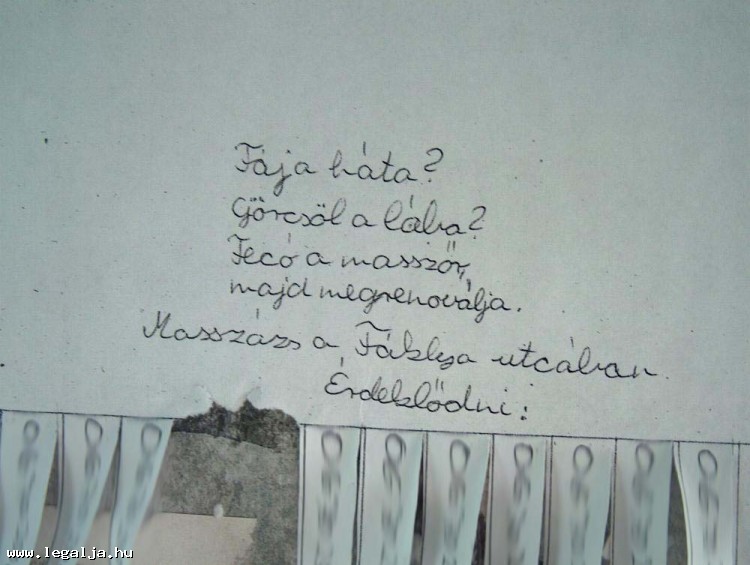 Fája háta?
Görcsöl a lába?
Fecó a masszőr,
majd megrenoválja.
Masszázs a Fáklya utcában
Érdeklődni:
www.legalja.hu